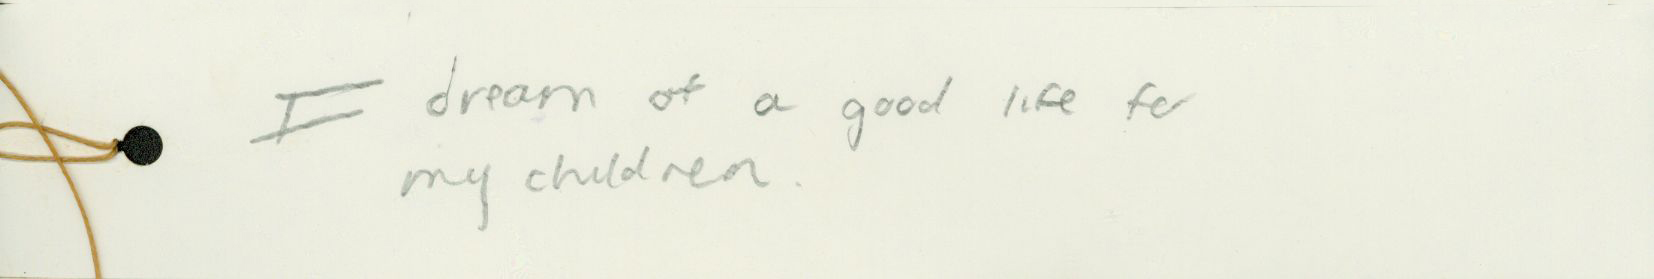 I dream of a good life for
my children.